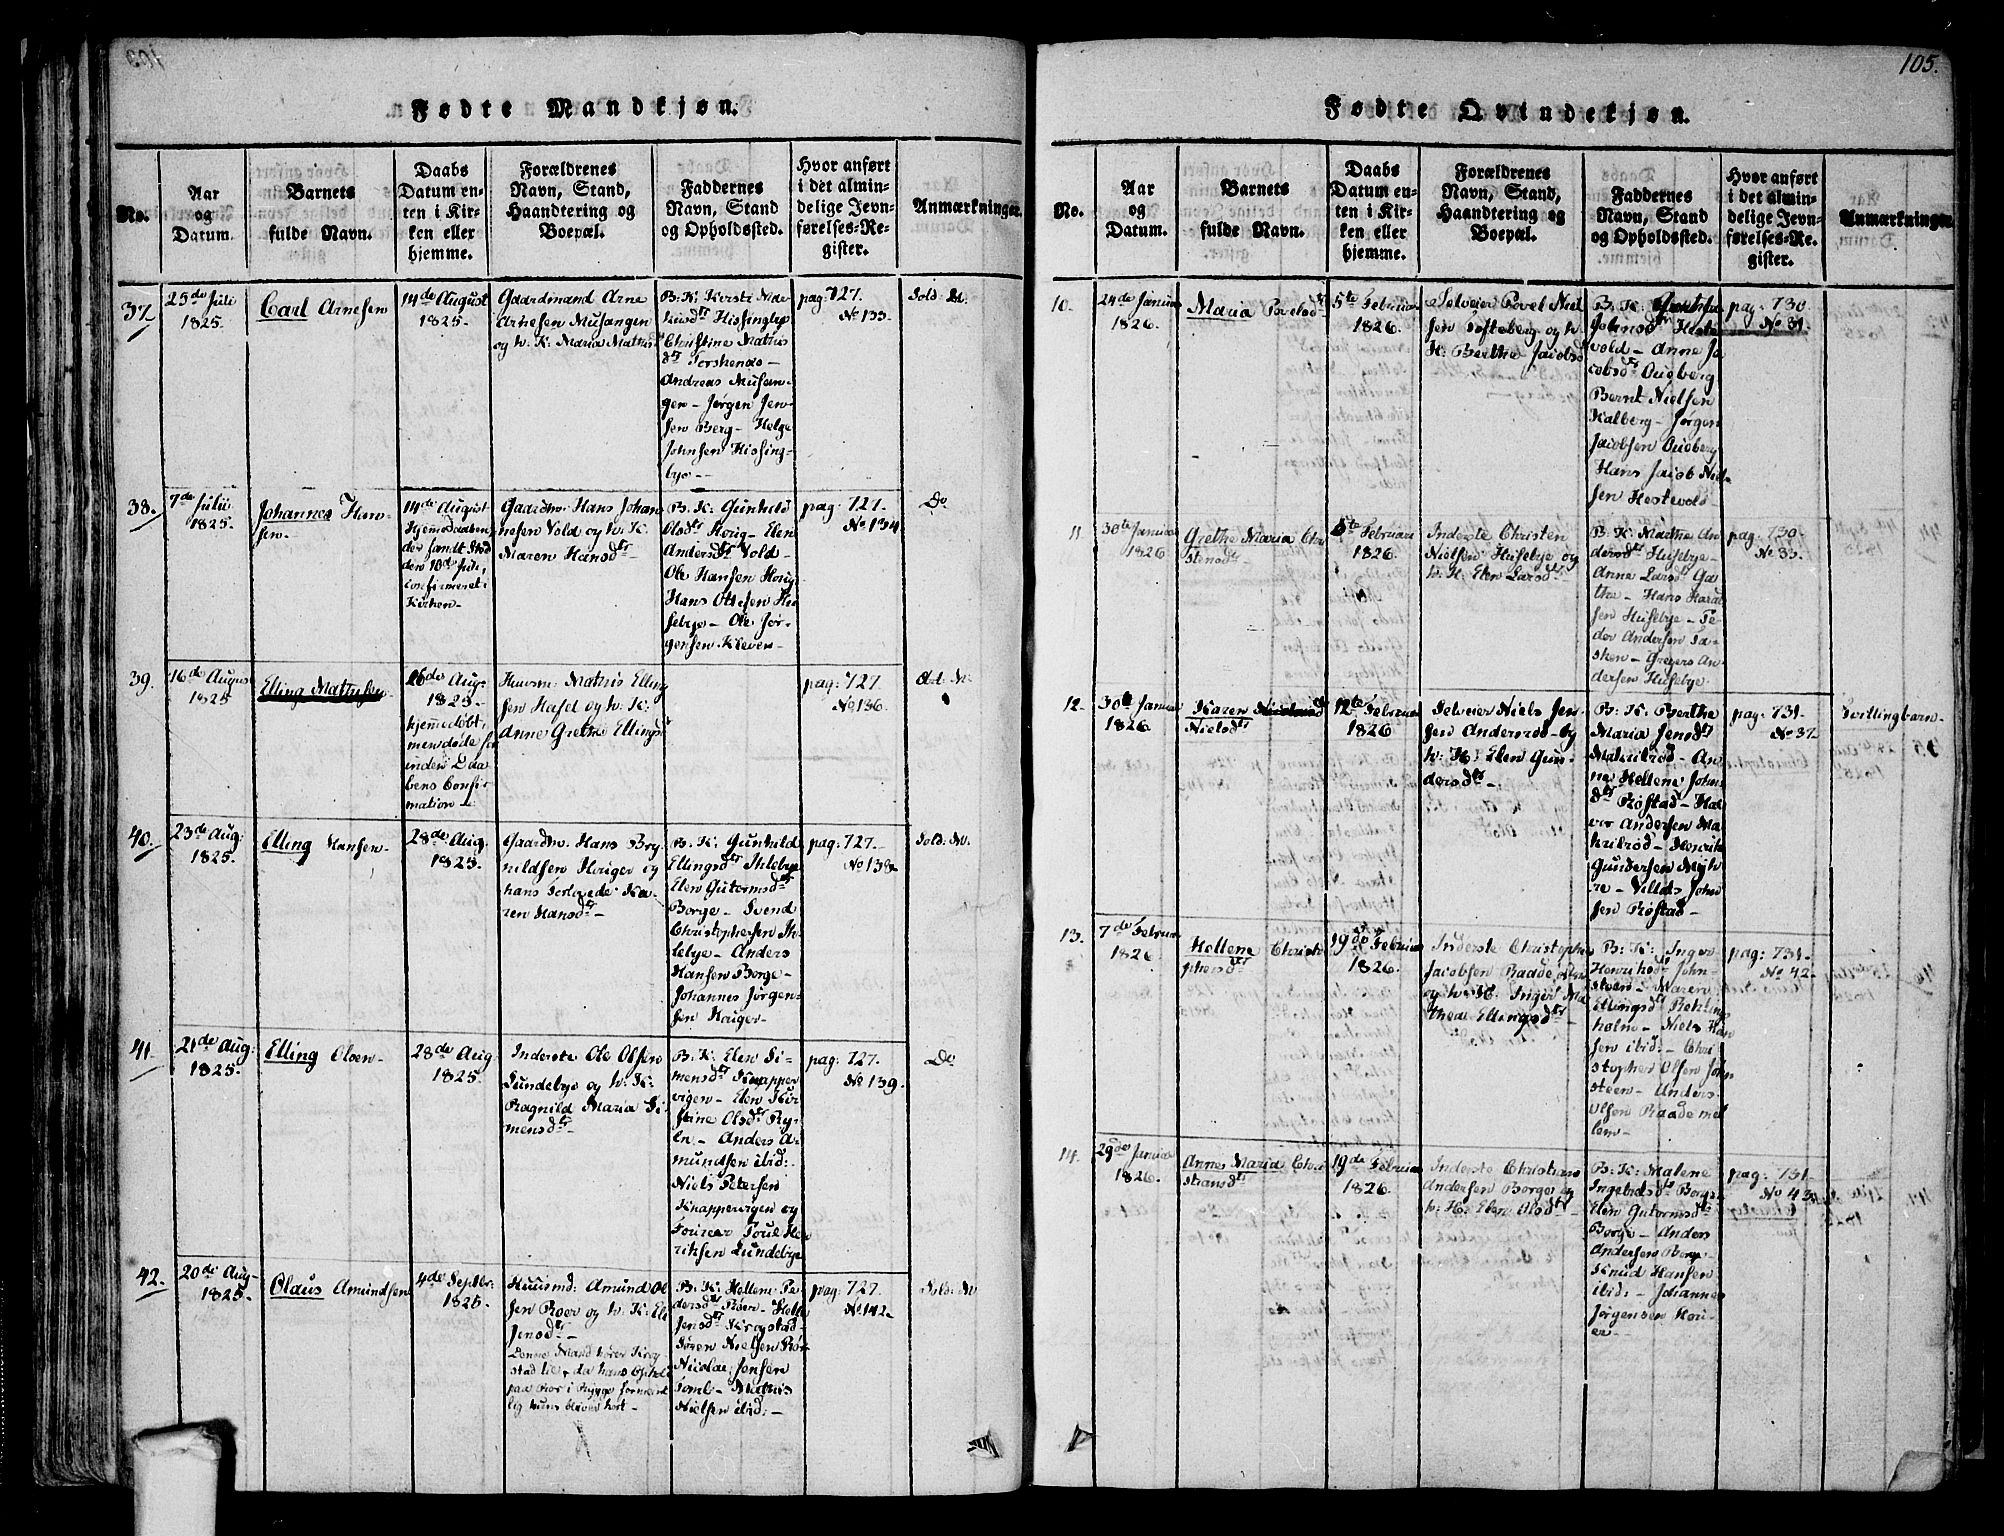 Fødte Mandkjøn.
No.
Aar
og
Datum.
Barnets
fulde Navn.
Daabs
Datum en-
ten i Kir-
ken eller
hjemme.
Forældrenes
Navn, Stand,
Haandtering og
Boepæl.
Faddernes
Navn, Stand
og Opholdssted.
Hvor anført
i det almin-
delige Jevn-
førelses-Re-
gister.
Anmærkninger.
37.
25de Juli
1825.
Carl Arnesen
14de August
1825.
Gaardmand Arne
Arnesen Musangen
og h. K: Maria Mathis
B: K: Kersti
Christine Mathis
dtr Torsknæs-
Andreas Musan-
gen- Jørgen Jen-
sen Berg- Helge
Johnsen Kissing-
bye-
pag: 727.
No 133.
38.
7de Julii
1825.
Johannes Han-
sen-
14de August
Hjemmedaaben
den 10de Juli,
confirmeret i
Kirken-
Gaardbr. Hans Johan
nesen Vold og h. K:
Maren Hansdtr
B: K: Gunhild
Olsdtr Horig- Elen
Andersdtr Vold-
Ole Hansen Horig
Hans Ottesen Hu
sebye- Ole Jør-
gensen Kleven-
pag: 727.
No 134
Do
39.
16de August
1825
Elling Mathisen
16de Aug:
1825-
hjemmedøbt,
men døde for
inden Daa
bens Confir
mation-
Huusm: Mathis Elling
sen Hasel og h. K:
Anne Grethe Ellingsd
pag: 727.
No 136.
40.
23de Aug:
1825.
Elling Hansen
28de Aug:
1825.
Gaardbr. Hans Bry
nildsen Houger og
hans Forlovede Ka-
ren Hansdtr-
B: K: Gunhild
Ellingsdtr Ihlebye
Elen Gutormsdtr
Borge- Svend
Christophersen Ih
lebye- Anders
Hansen Borge-
Johannes Jørgen-
sen Houger-
pag: 727.
No 138-
41.
21de Aug:
1825.
Elling Olsen
28de Aug
1825.
Inderste Ole Olsen
Lundebye og h. K:
Ragnild Maria Si-
mensdtr-
B: K: Elen Si-
mensdtr Knapper
vigen- Elen Kir
stine Olsdtr Ry-
en- Anders A-
mundsen ibid:
Niels Petersen
Knappervigen og
Fourier Poul Hen
riksen Lundebye
pag: 727.
No 139.
Do
42.
20de Aug-
1825.
Olaus Amundsen
4de Septbr:
1825.
Huusmd: Amund Ol
sen Roer og h. K: Eli
Jensdtr-
Denne Mand hører Krog
stad til, da hans Ophold
paa Roer i Rygge forment
lig kuns bliver kort-
B: K: Hellene Pe-
dersdtr Roer-
Jensdtr Krogstad-
Søren Nielsen Roer
Nicolai Jensen
Tomb- Mathis
Nielsen ibid:-
pag: 727.
No 142-
105.
Fødte Qvindekjøn.
No.
Aar
og
Datum.
Barnets
fulde Navn.
Daabs
Datum en-
ten i Kir-
ken eller
hjemme.
Forældrenes
Navn, Stand,
Haandtering og
Boepæl.
Faddernes
Navn, Stand
og Opholdssted.
Hvor anført
i det almin-
delige Jevn-
førelses-Re-
gister.
Anmærkninger.
10.
24de Januar
1826.
Maria Povelsdtr
5te Februar
1826.
Selveier Povel Niel
sen Tofteberg og h.
K: Berthe Jacobsd
B: K: Gunthe
Johnsdtr Heste
vold- Anne Ja
cobsdtr Oudberg
Bernt Nielsen
Kalberg- Jørgen
Jacobsen Oudberg
Hans Jacob Niel
sen Hestevold
pag: 730
No 31.
11
30te Januar
1826
Grethe Maria Chri
stensdtr
5te Februar
1826.
Inderste Christen
Nielsen Husebye og
h. K: Elen Larsdtr
B: K: Marthe An
dersdtr Husebye-
Anne Larsdtr
Hans
sen Husebye- Pe-
der Andersen
Gregers An
dersen Husebye.
pag: 730-
No 33.
12.
30te Januar
1826
Karen
Nielsdtr
12te Februar
1826
Selveier Niels Jen-
sen Andersrød- og
h. K: Elen Gun-
dersdtr-
B: K: Berthe
Maria Jensdtr
Makrilrød- An-
ne Hellene Johns
dtr Røstad- Hal
vor Andersen Ma
krilrød- Henrik
Gundersen Myh-
re- Villads John
sen Røstad-
pag: 731-
No 37.
Tvillingbarn-
13.
7de Februar
1826
Hellene Christo
phersdtr
19de Februar
1826.
Inderste Christopher
Jacobsen Raade
og h. K: Inger Ma
thea Ellingsdtr
B: K: Inger
Henriksdtr John-
steen- Maren
Ellingsdtr
holm- Niels Han
sen ibid:- Chri
stopher Olsen John
steen- Anders
Olsen Raade mel
lem-
pag: 731-
No 42-
14.
29de Januar
1826.
Anne Maria Chri
stiansdtr
19de Februar
1826
Inderste Christian
Andersen Borge og
h. K: Elen Olsdtr
B: K: Malene
Ingebretsdtr Borge-
Elen Gutormsdtr
Borge- Anders
Andersen Borge-
Knud Hansen
ibid:- Johannes
Jørgensen Hou-
er-
pag: 731-
No 43